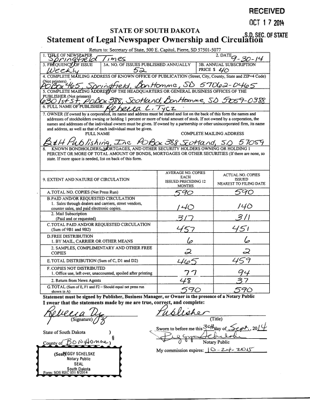 RECEIVED
OCT 17 2014
S.D. SEC. OF STATE
STATE OF SOUTH DAKOTA
Statement of Legal Newspaper Ownership and Circulation
Return to: Secretary of State, 500 E. Capitol, Pierre, SD 57501-5077
1. TITLE OF NEWSPAPER
Springfield Times
2. DATE
9-30-14
3. FREQUENCY OF ISSUE
Weekly
3A. NUMBER OF ISSUES PUBLISHED ANNUALLY
52
3B. ANNUAL SUBSCRIPTION PRICE $ 40
4. COMPLETE MAILING ADDRESS OF KNOWN OFFICE OF PUBLICATION (Street, City, County, State and ZIP+4 Code) (Not printers)
PO Box 465, Springfield, Bon Homme, SD 57062-0465
5. COMPLETE MAILING ADDRESS OF THE HEADQUARTERS OF GENERAL BUSINESS OFFICES OF THE PUBLISHER (Not printers)
630 1st St. PO Box 388, Scotland, Bon Homme, SD 57059-0388
6. FULL NAME OF PUBLISHER
Rebecca L. Tycz
7. OWNER (If owned by a corporation, its name and address must be stated and list on the back of this form the names and
addresses of stockholders owning or holding 1 percent or more of total amount of stock. If not owned by a corporation, the
names and addresses of the individual owners must be given. If owned by a partnership or other unincorporated firm, its name
and address, as well as that of each individual must be given.
FULL NAME
COMPLETE MAILING ADDRESS
B&H Publishing, Inc PO Box 388, Scotland, SD 57059
8. KNOWN BONDHOLDERS, MORTGAGES, AND OTHER SECURITY HOLDERS OWNING OR HOLDING 1
PERCENT OR MORE OF TOTAL AMOUNT OF BONDS, MORTGAGES OR OTHER SECURITIES (If there are none, so
state. If more space is needed, list on back of this form.
9. EXTENT AND NATURE OF CIRCULATION
AVERAGE NO. COPIES EACH ISSUED PRECEDING 12 MONTHS
ACTUAL NO. COPIES ISSUED NEAREST TO FILING DATE
A. TOTAL NO. COPIES (Net Press Run)
590
590
B. PAID AND/OR REQUESTED CIRCULATION
1. Sales through dealers and carriers, street vendors, counter sales, and paid electronic copies.
140
140
2. Mail Subscription (Paid and or requested)
317
311
C. TOTAL PAID AND/OR REQUESTED CIRCULATION (Sum of 9B1 and 9B2)
457
451
D. FREE DISTRIBUTION
1. BY MAIL, CARRIER OR OTHER MEANS
6
6
2. SAMPLES, COMPLIMENTARY AND OTHER FREE COPIES
2
2
E. TOTAL DISTRIBUTION (Sum of C, D1 and D2)
465
459
F. COPIES NOT DISTRIBUTED
1. Office use, left over, unaccounted, spoiled after printing
77
94
2. Return from News Agents
48
37
G. TOTAL (Sum of E, F1 and F2 - Should equal net press run shown in A)
590
590
Statement must be signed by Publisher, Business Manager, or Owner in the presence of a Notary Public
I swear that the statements made by me are true, correct, and complete:
Rebecca Tycz
(Signature)
Publisher
(Title)
State of South Dakota )
County of Bon Homme )
Sworn to before me this 30th day of Sept. 2014
Peggy Schelske
Notary Public
My commission expires:
(Seal)
PEGGY SCHELSKE
Notary Public
SEAL
South Dakota